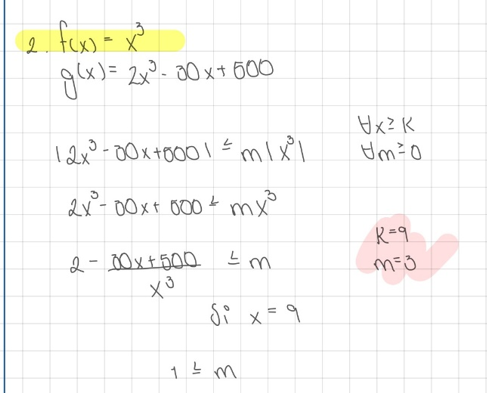 2. f(x) = x³
g(x) = 2x³ - 30x + 500
|2x³ - 30x + 500| ≤ m|x³|
∀x ≥ K
∀m ≥ 0
2x³ - 30x + 500 ≤ mx³
K = 9
m = 3
2 - 30x + 500 / x³ ≤ m
Si x = 9
1 ≤ m